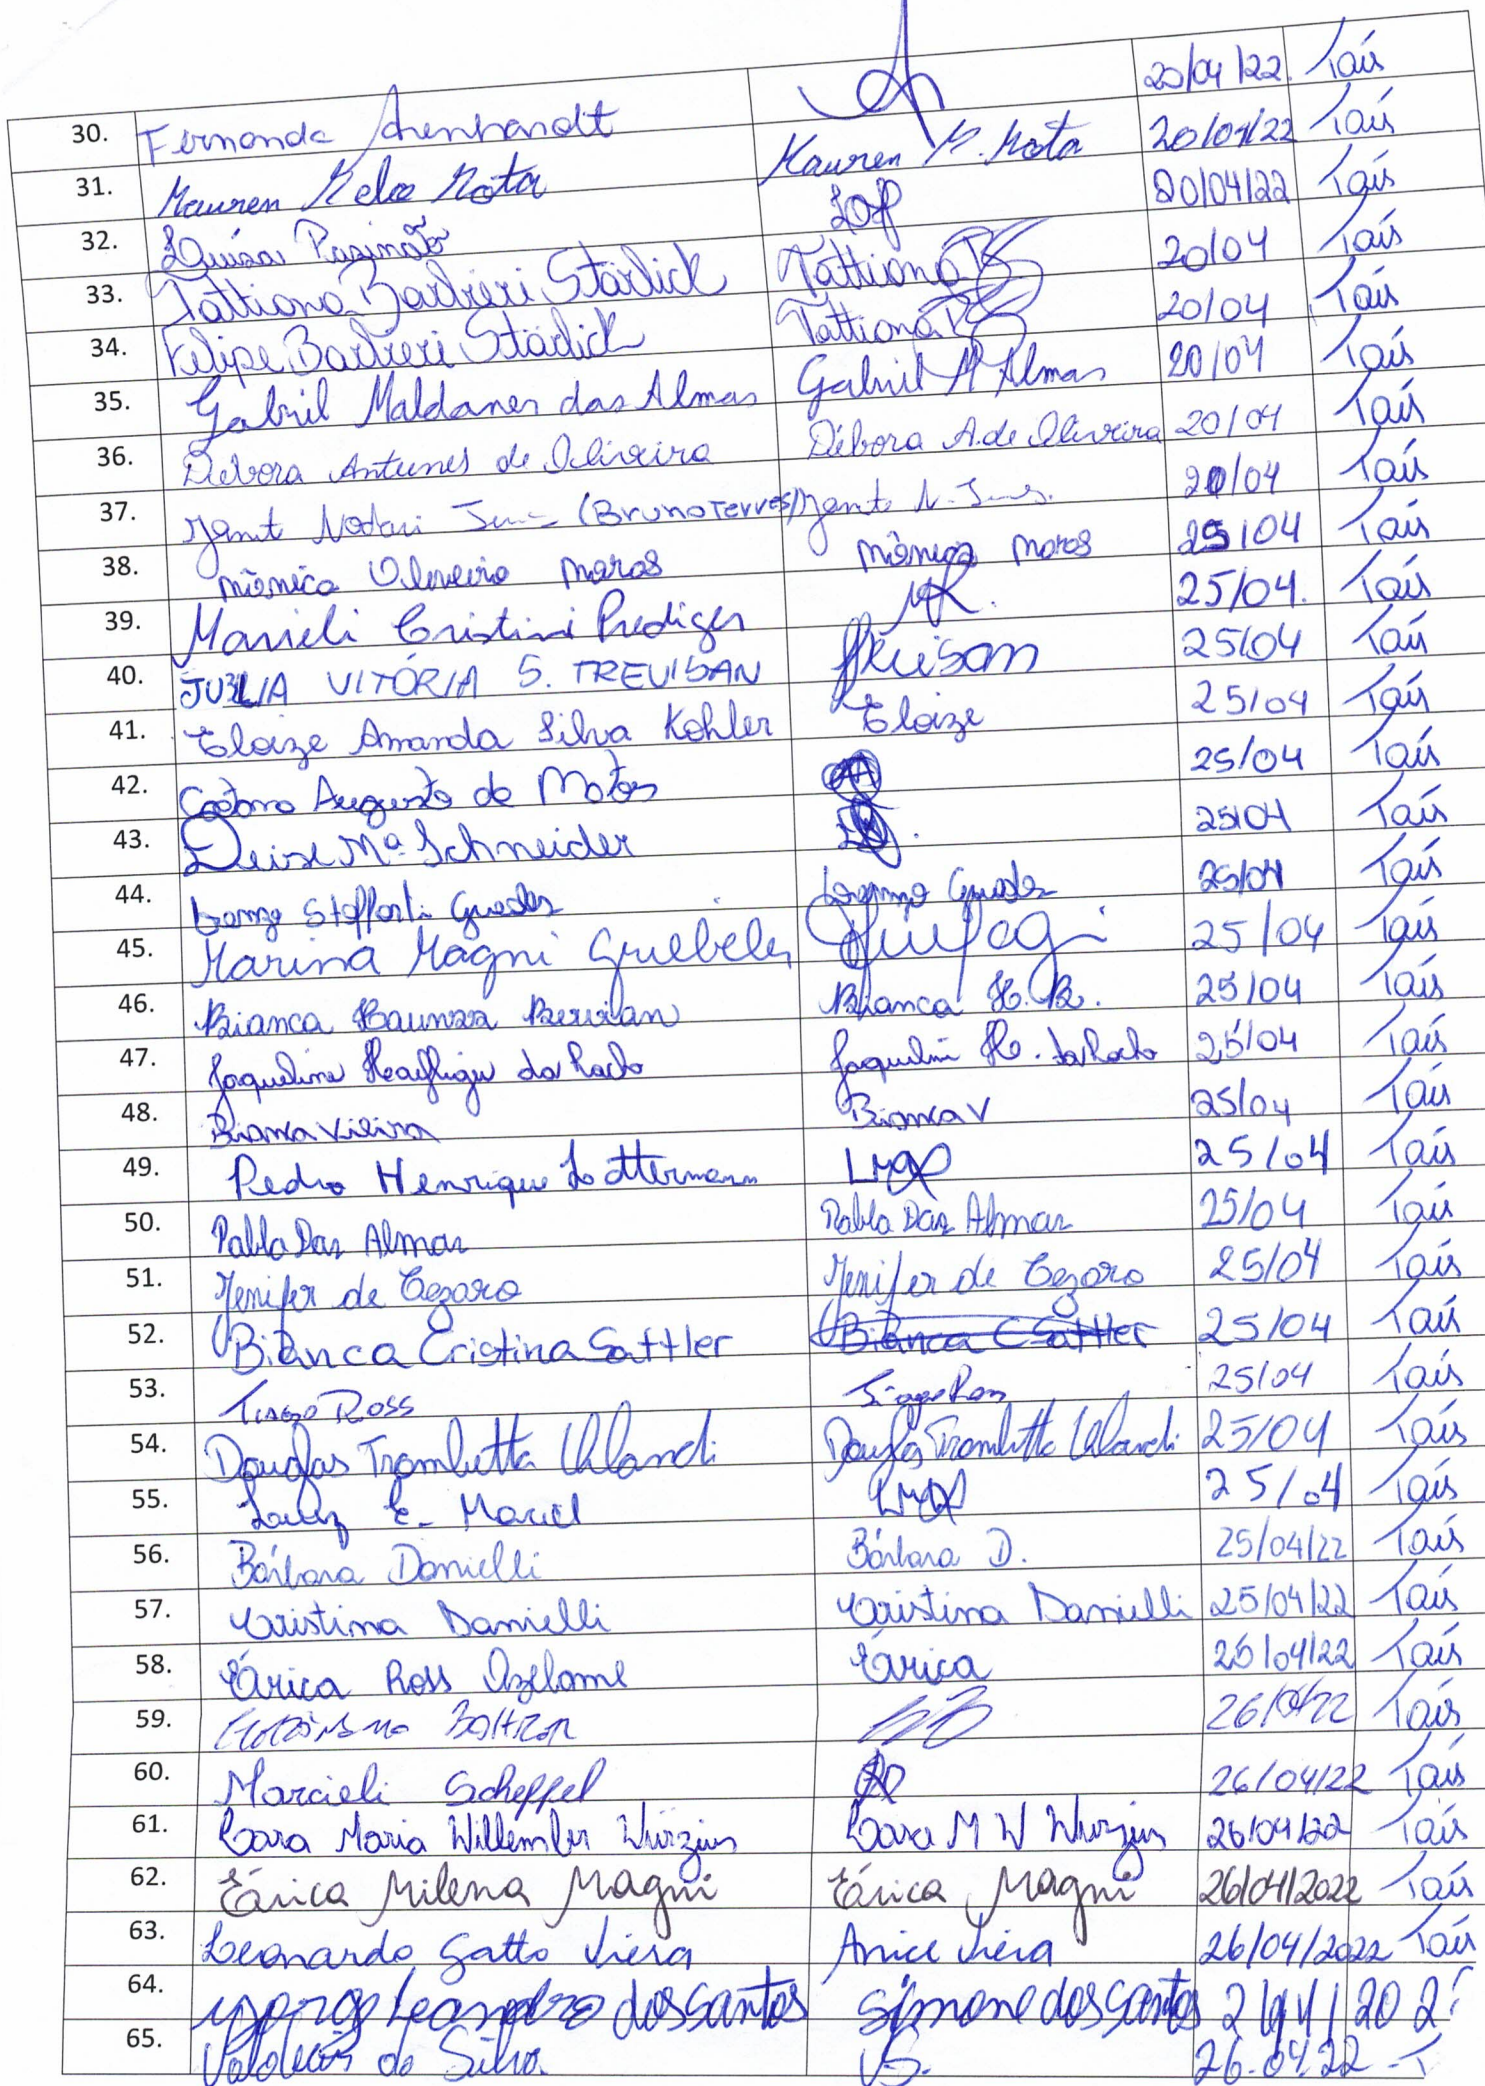 30. Fernanda Arenhardt 20/04/22 Taís
31. Mauren Melo Mota Mauren M. Mota 20/04/22 Taís
32. Luísa Pasinato 20/04/22 Taís
33. Tattiana Barbieri Stärlick Tattiana 20/04 Taís
34. Felipe Barbieri Stärlick Tattiana 20/04 Taís
35. Gabriel Maldaner das Almas Gabriel M Almas 20/04 Taís
36. Débora Antunes de Oliveira Débora A. de Oliveira 20/04 Taís
37. Nodari (Bruno Terres) 20/04 Taís
38. Mônica Oliveira Moras Mônica Moras 25/04 Taís
39. Marieli Cristini Prediger 25/04. Taís
40. JÚLIA VITÓRIA S. TREVISAN 25/04 Taís
41. Eloize Amanda Silva Kohler Eloize 25/04 Taís
42. Augusto de Matos 25/04 Taís
43. Deise Mª Schneider 25/04 Taís
44. Guedes Guedes 25/04 Taís
45. Marina Magni Griebeler 25/04 Taís
46. Bianca Bianca H. B. 25/04 Taís
47. Jaqueline da Rocha Jaqueline H. da Rocha 25/04 Taís
48. Bianca Vieira Bianca V 25/04 Taís
49. Pedro Henrique Lottermann 25/04 Taís
50. Pabla Das Almas Pabla Das Almas 25/04 Taís
51. Jenifer de Cezaro Jenifer de Cezaro 25/04 Taís
52. Bianca Cristina Sattler Bianca C Sattler 25/04 Taís
53. Tiago Ross Tiago Ross 25/04 Taís
54. Douglas Trombetta Douglas Trombetta 25/04 Taís
55. Luiz E. Maciel 25/04 Taís
56. Bárbara Danielli Bárbara D. 25/04/22 Taís
57. Cristina Danielli Cristina Danielli 25/04/22 Taís
58. Érica Ross Érica 25/04/22 Taís
59. 26/04/22 Taís
60. Marcieli Scheppel 26/04/22 Taís
61. Maria M W 26/04/22 Taís
62. Érica Milena Magni Érica Magni 26/04/2022 Taís
63. Leonardo Gatto Viera Anice Viera 26/04/2022 Taís
64. Leandro dos Santos Simone dos Santos
65. da Silva VS. 26.04.22